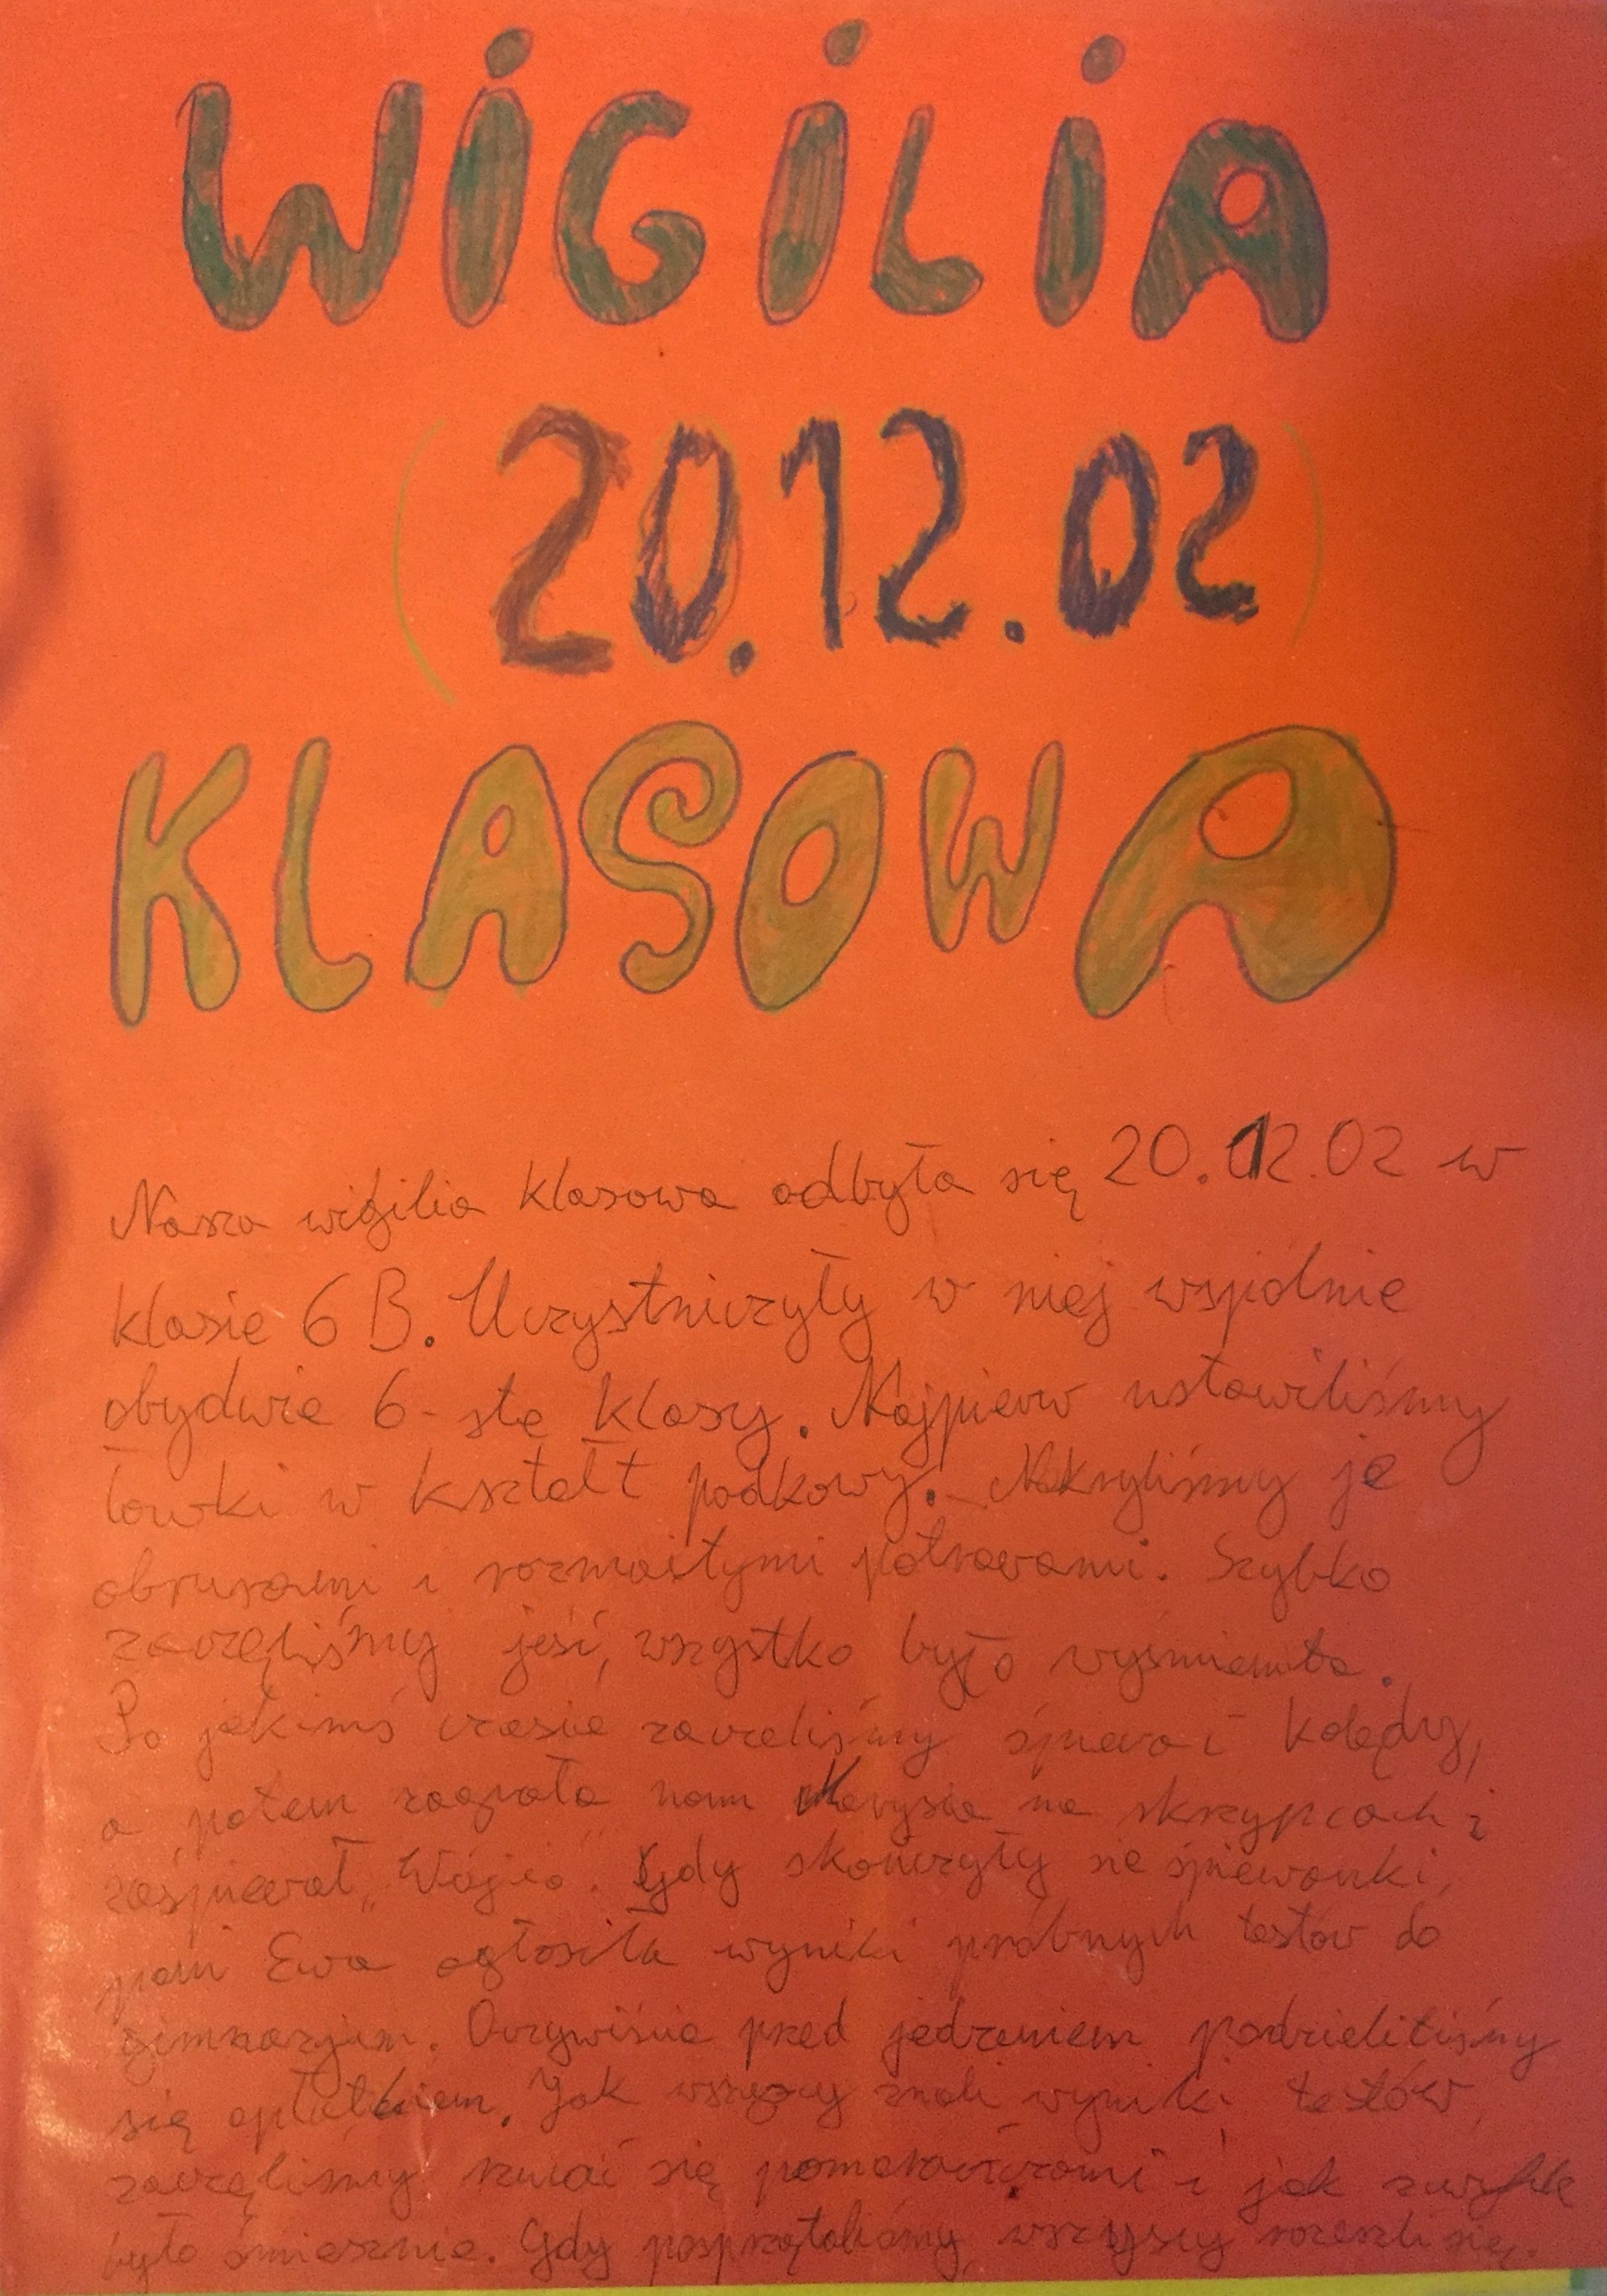 WIGILIA
(20.12.02)
KLASOWA
Nasza wigilia klasowa odbyła się 20.12.02 w
klasie 6 B. Uczystniczyły w niej wspólnie
obydwie 6-ste klasy. Najpierw ustawiliśmy
ławki w kształt podkowy. Nakryliśmy je
obrusami i rozmaitymi potrawami. Szybko
zaczęliśmy jeść, wszystko było wyśmienite.
Po jakimś czasie zaczeliśmy śpiewać kolędy,
a potem zagrała nam Marysia na skrzypcach i
zaśpiewał „Wójcio". Gdy skończyły sie śpiewanki,
pani Ewa ogłosiła wyniki próbnych testów do
gimnazjum. Oczywiście przed jedzeniem podzieliliśmy
się opłatkiem. Jak wszyscy znali wyniki testów,
zaczęliśmy rzucać się pomarańczami i jak zwykle
było śmiesznie. Gdy posprzątaliśmy wszyscy rozeszli się.